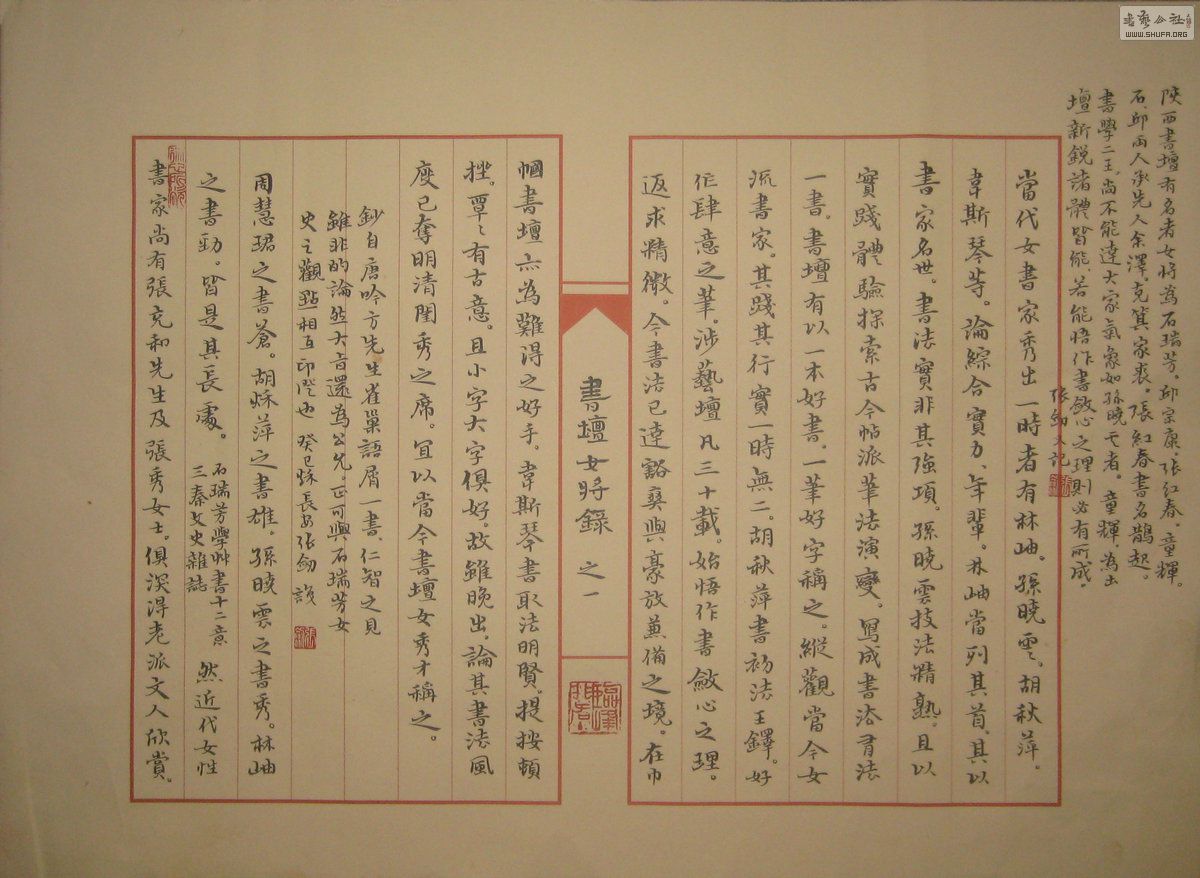 書藝公社
WWW.SHUFA.ORG
陝西書壇有名者女將為石瑞芳。邱宗康。張紅春。童輝。
石、邱兩人承先人余澤，克箕家裘。張紅春書名鵲起。
書學二王，尚不能達大家氣象如孫曉雲者。童輝為出
壇新銳諸體皆能，若能悟作書斂心之理則必有所成。
張劍又記
當代女書家秀出一時者有林岫。孫曉雲。胡秋萍。
韋斯琴等。論綜合實力、年輩。林岫當列其首。其以
書家名世。書法實非其強項。孫曉雲技法精熟。且以
實踐體驗探索古今帖派筆法演變。寫成書法有法
一書。書壇有以一本好書。一筆好字稱之。縱觀當今女
流書家。其踐其行實一時無二。胡秋萍書初法王鐸。好
作肆意之筆。涉藝壇凡三十載。始悟作書斂心之理。
返求精微。今書法已達豁奕與豪放兼備之境。在巾
書壇女將錄 之一
幗書壇亦為難得之好手。韋斯琴書取法明賢。提按頓
挫。覃覃有古意。且小字大字俱好。故雖晚出，論其書法風
度已奪明清閨秀之席。宜以當今書壇女秀才稱之。
鈔自唐吟方先生雀巢語屑一書、仁智之見
雖非的論然大音還為公允。正可與石瑞芳女
史之觀點相互印證也 癸巳秋長安張劍
周慧珺之書蒼。胡秋萍之書雄。孫曉雲之書秀。林岫
之書勁。皆是其長處。石瑞芳學艸書十二意
三秦文史雜誌
然近代女性
書家尚有張充和先生及張秀女士。俱深得老派文人欣賞。